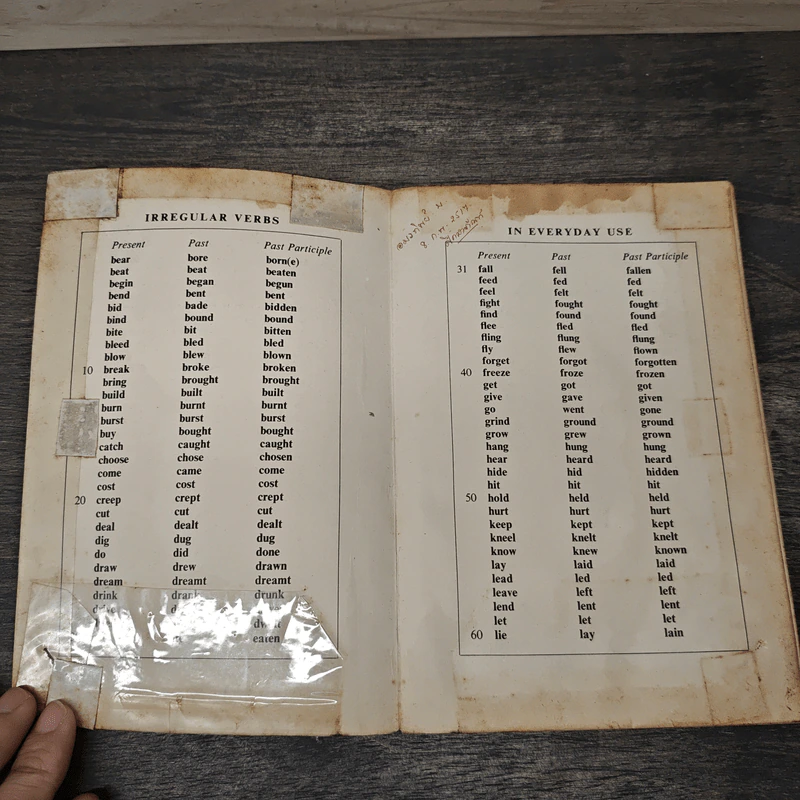 IRREGULAR VERBS
Present Past Past Participle
bear bore born(e)
beat beat beaten
begin began begun
bend bent bent
bid bade bidden
bind bound bound
bite bit bitten
bleed bled bled
blow blew blown
10 break broke broken
bring brought brought
build built built
burn burnt burnt
burst burst burst
buy bought bought
catch caught caught
choose chose chosen
come came come
cost cost cost
20 creep crept crept
cut cut cut
deal dealt dealt
dig dug dug
do did done
draw drew drawn
dream dreamt dreamt
drink drank drunk
eaten
IN EVERYDAY USE
Present Past Past Participle
31 fall fell fallen
feed fed fed
feel felt felt
fight fought fought
find found found
flee fled fled
fling flung flung
fly flew flown
forget forgot forgotten
40 freeze froze frozen
get got got
give gave given
go went gone
grind ground ground
grow grew grown
hang hung hung
hear heard heard
hide hid hidden
hit hit hit
50 hold held held
hurt hurt hurt
keep kept kept
kneel knelt knelt
know knew known
lay laid laid
lead led led
leave left left
lend lent lent
let let let
60 lie lay lain